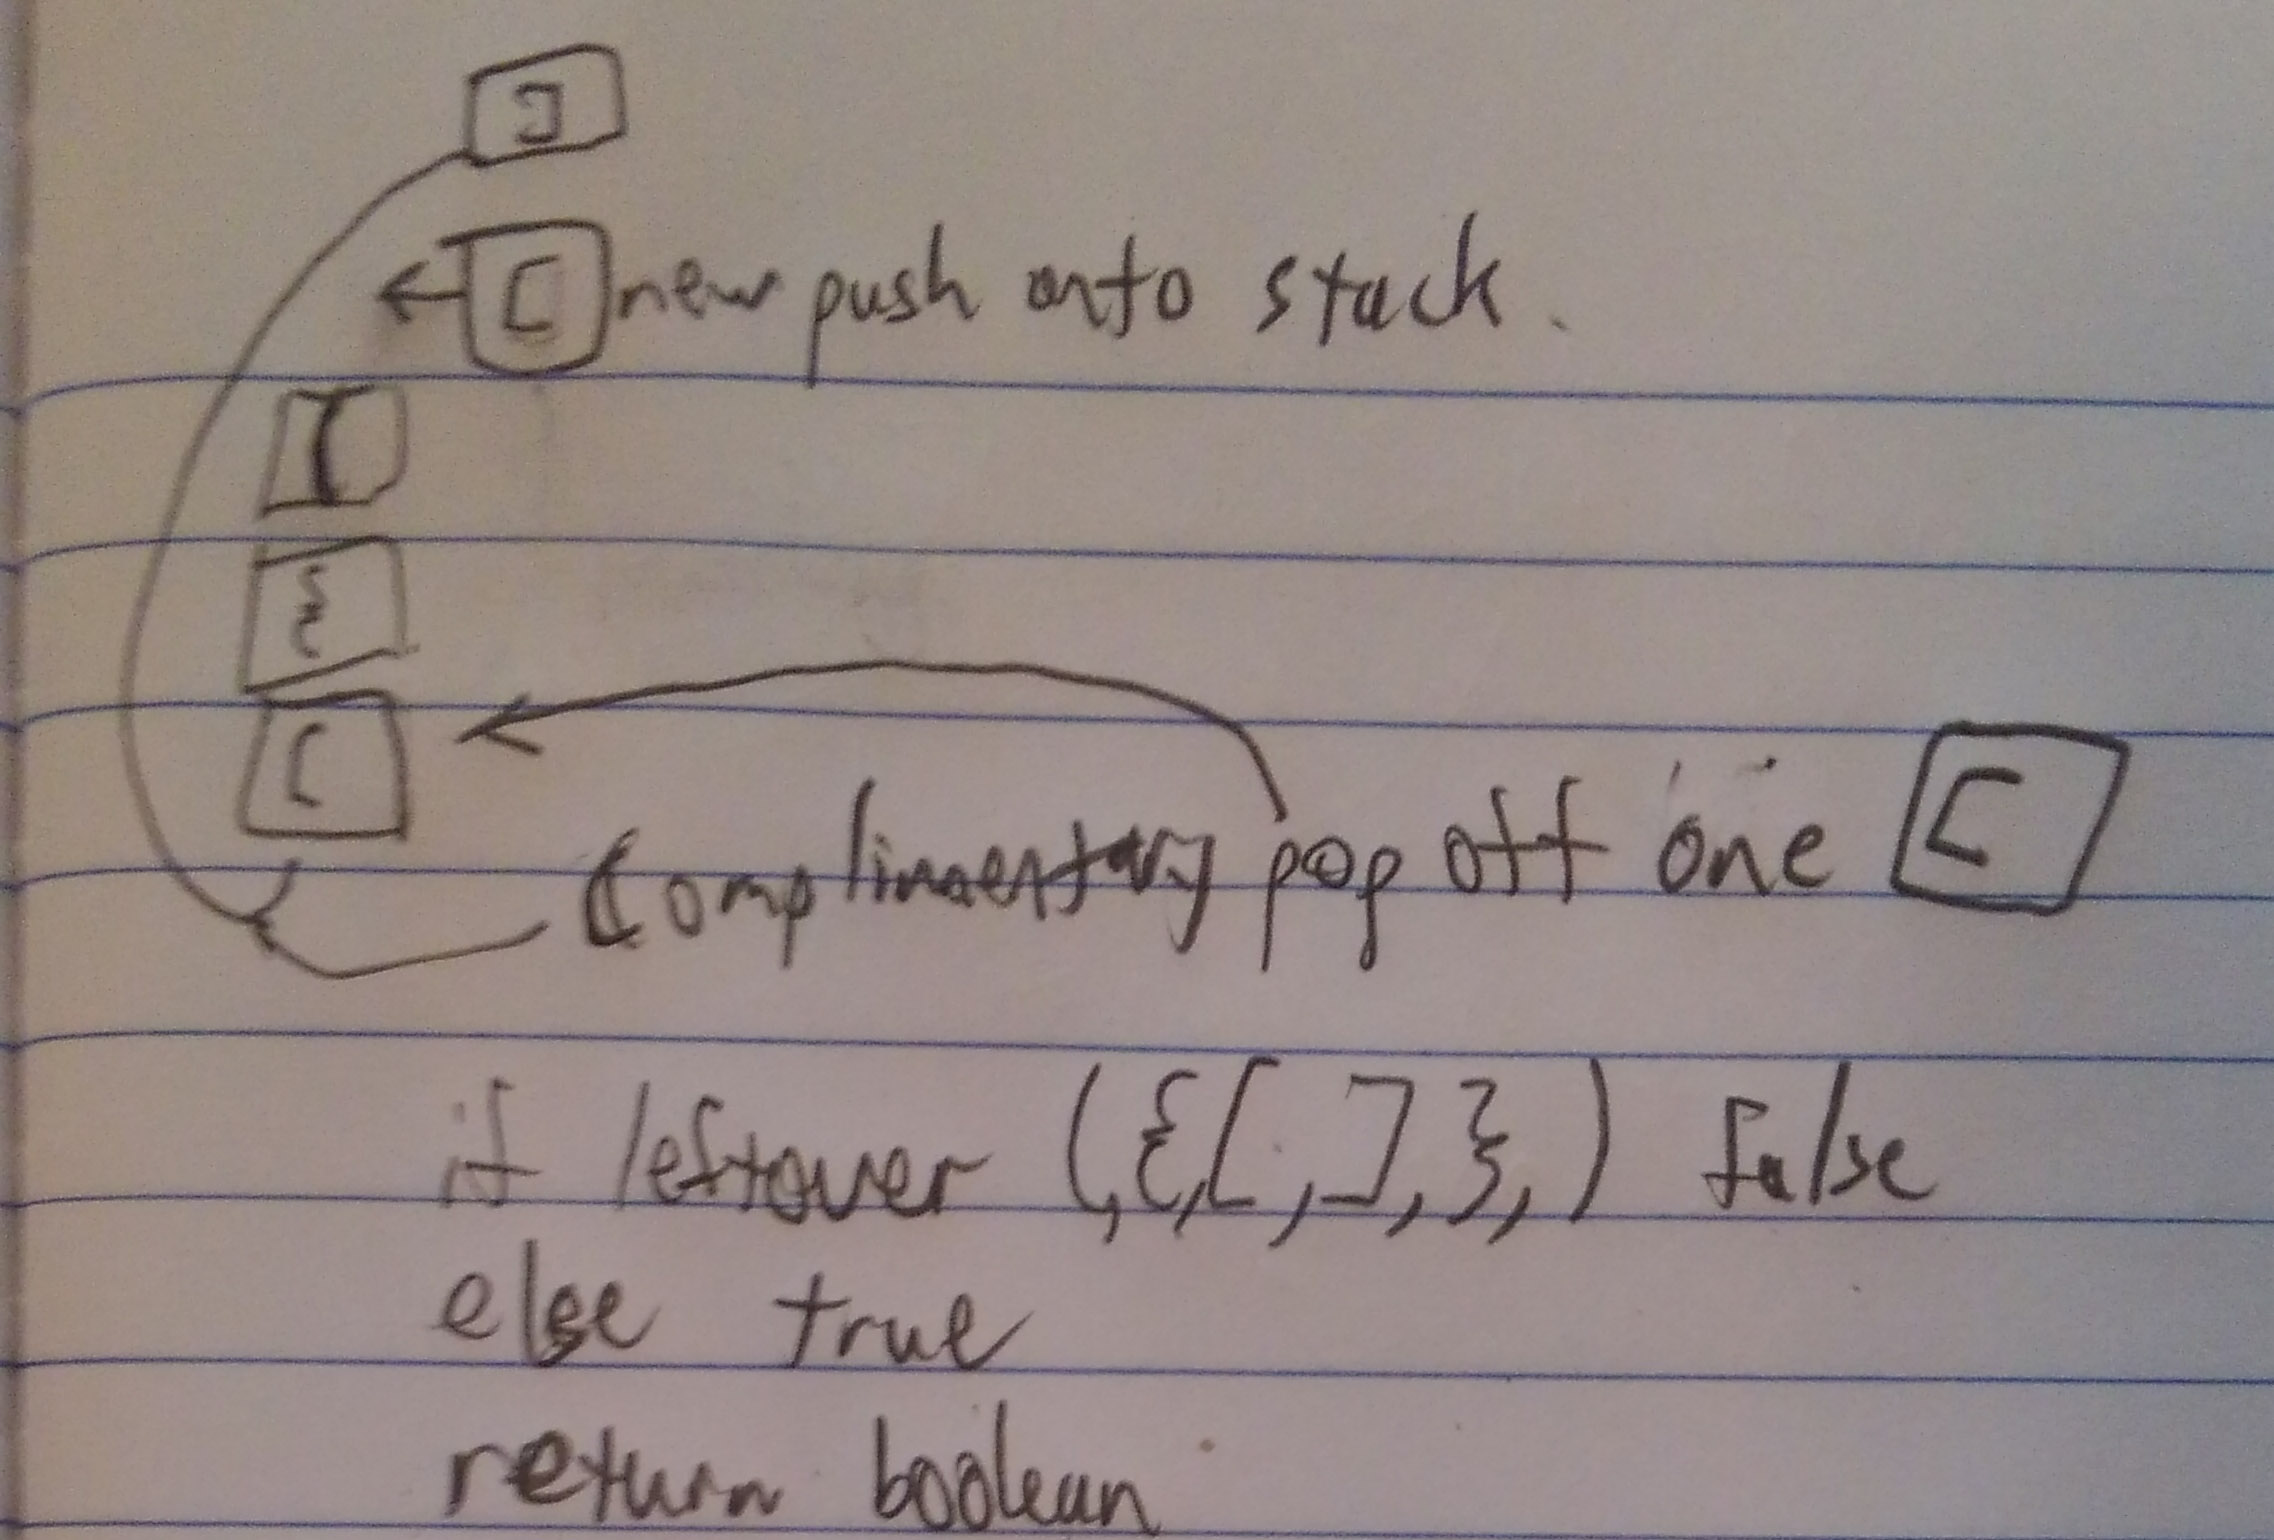 ]
[ new push onto stack.
(
{
[
Complimentary pop off one [
if leftover (,{,[,],},) false
else true
return boolean